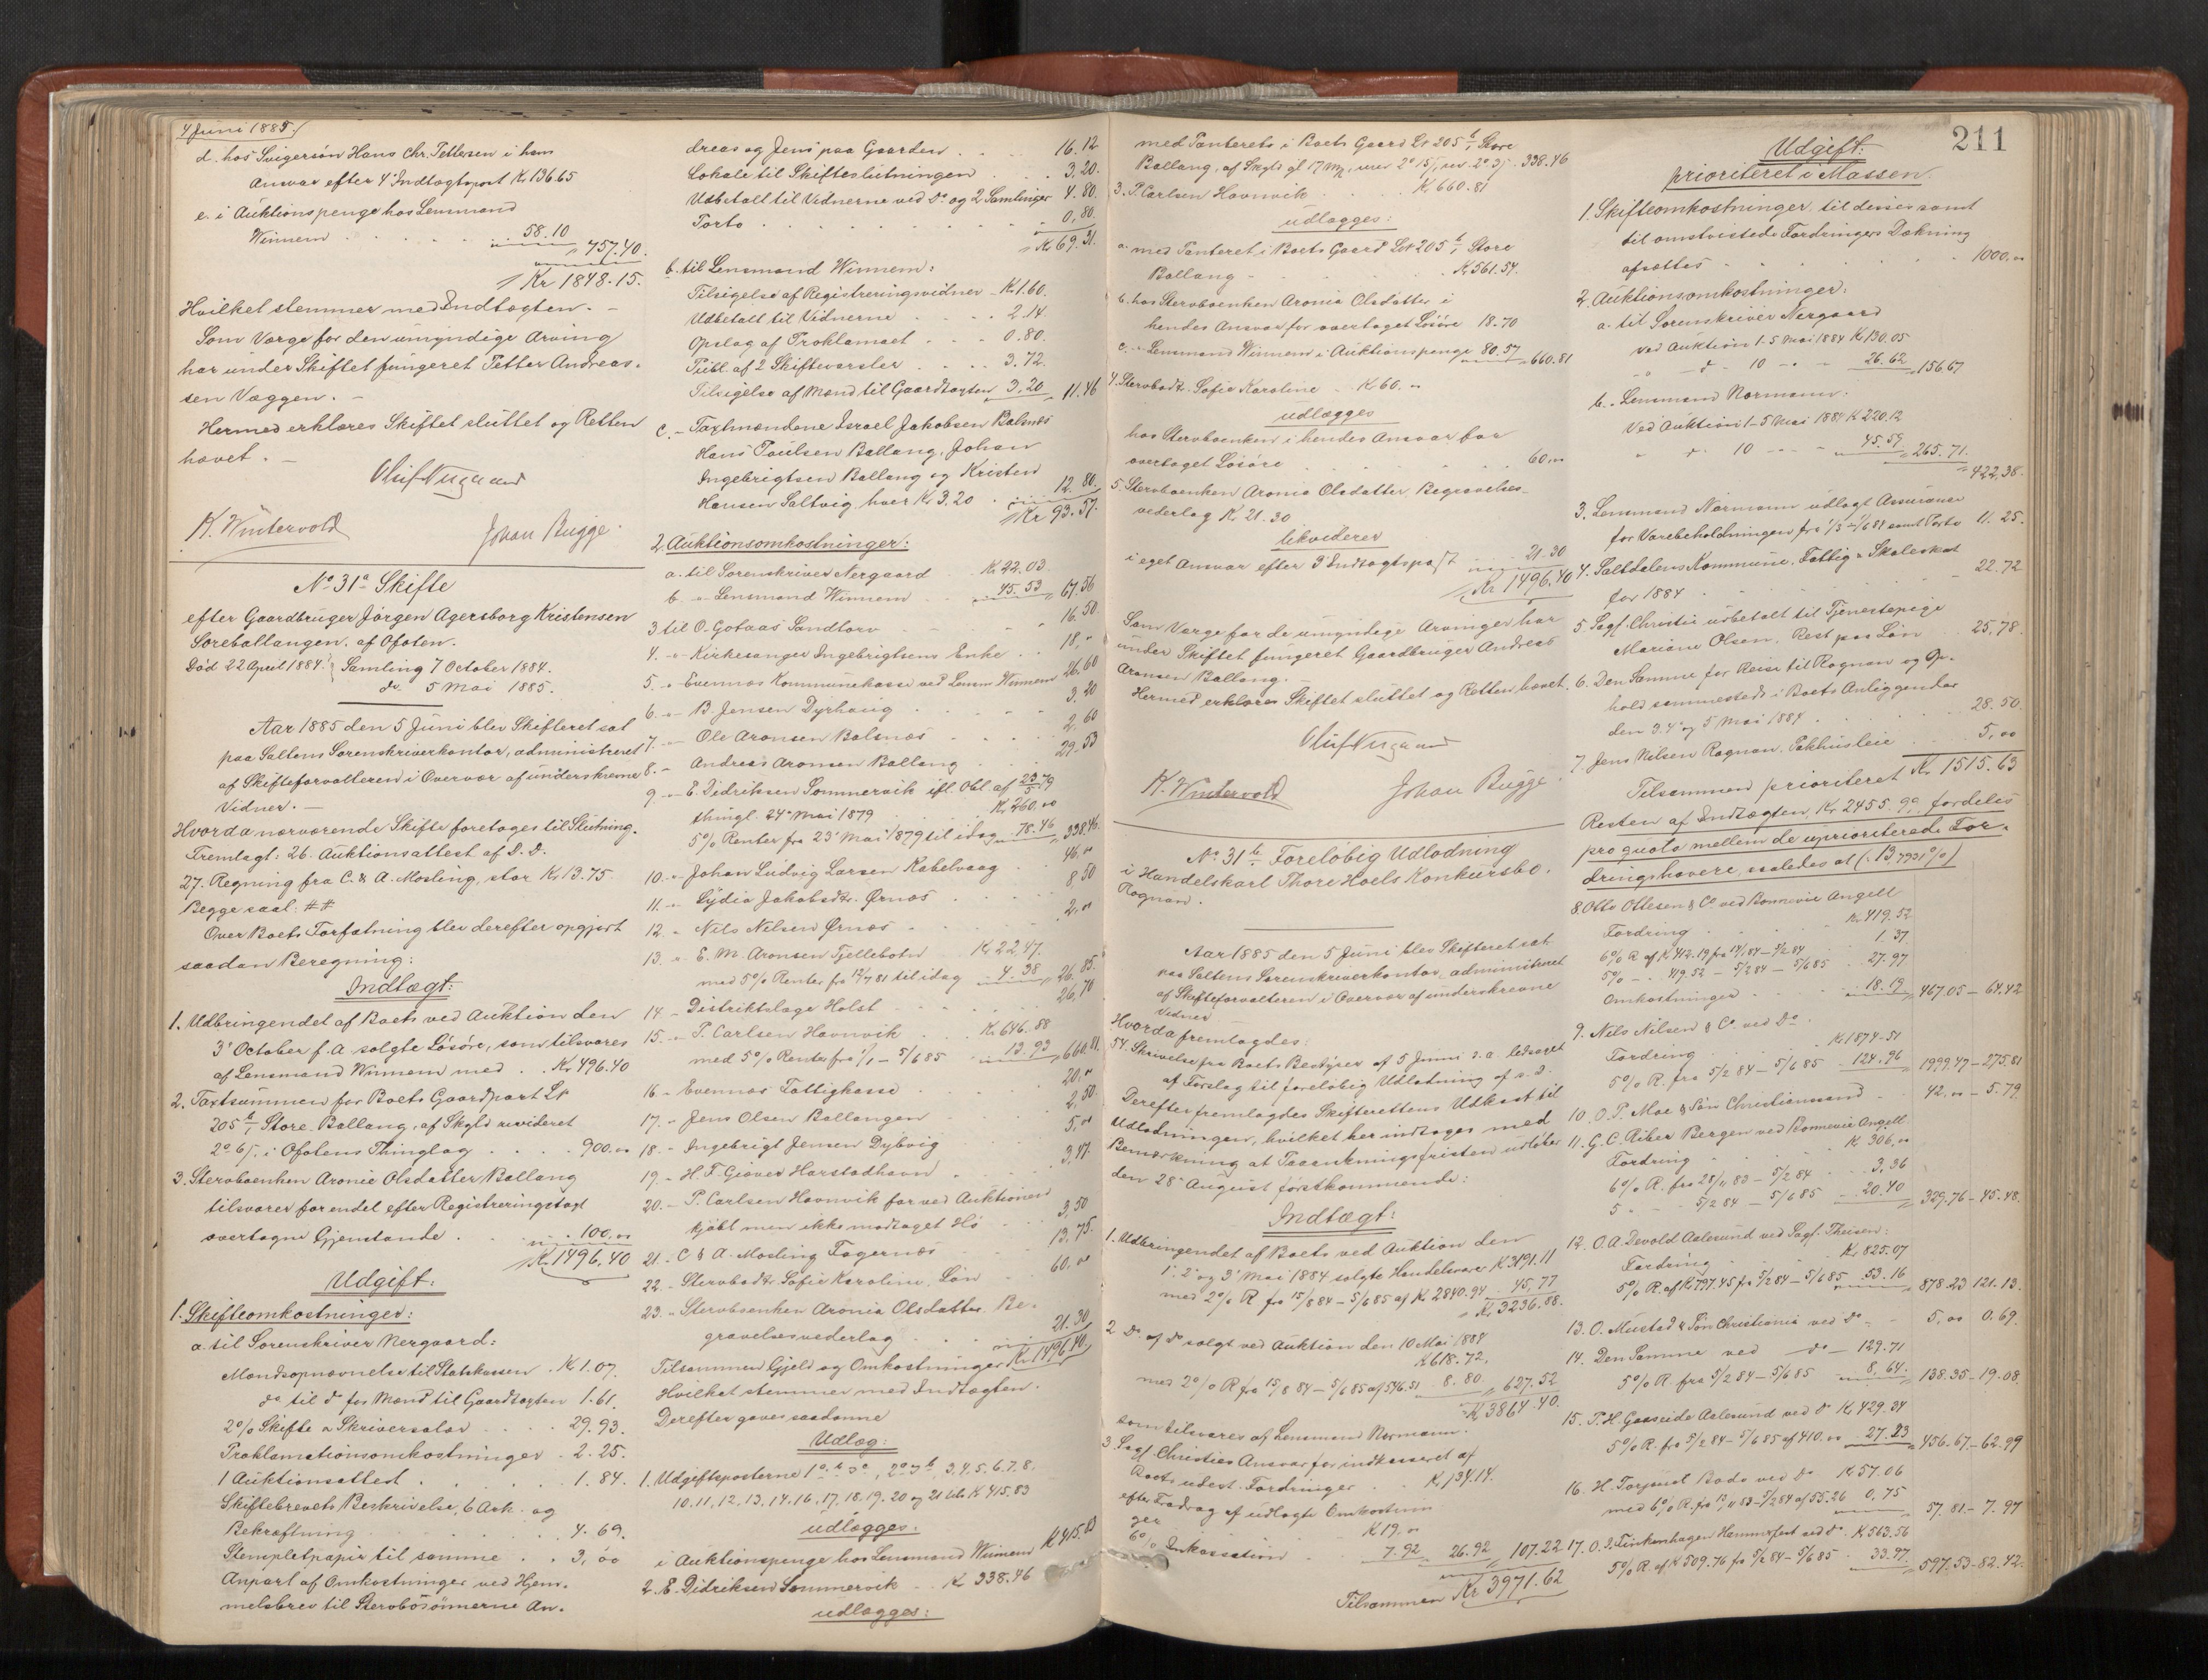 4 Juni 1885.
d. hos Svigersøn Hans Chr. Pettersen i hans
Ansvar efter 4' Indtægtspost Kr 136.65
e. i Auktionspenge hos Lensmand
Winnem . . . . . 58.10
" 757.40.
Kr 1848.15.
Hvilket stemmer med Indtægten. —
Som Værge for den umyndige Arving
har under Skiftet fungeret Petter Andreas-
sen Væggen. —
Hermed erklæres Skiftet sluttet og Retten
hævet. —
K. Wintervold Johan Bugge.
No 31a Skifte
efter Gaardbruger Jørgen Agersborg Kristensen
Storeballangen, af Ofoten.
Død 22 April 1884. Samling 7 October 1884.
do 5 Mai 1885.
Aar 1885 den 5 Juni blev Skifteret sat
paa Saltens Sorenskriverkontor, administreret
af Skifteforvalteren i Overvær af underskrevne
Vidner. —
Hvorda nærværende Skifte foretoges til Slutning.
Fremlagt: 26. Auktionsattest af D. D.
27. Regning fra C. & A. Mosling, stor Kr 13.75.
Begge saal: ##
Over Boets Forfatning blev derefter opgjort
saadan Beregning:
Indtægt:
1. Udbringendet af Boets ved Auktion den
3' October f. A. solgte Løsøre, som tilsvares
af Lensmand Winnem med . . Kr 496.40
2. Taxtsummen for Boets Gaardpart Lr
205 b/1 Store Ballang, af Skyld revideret
2 o. 6 /, i Ofotens Thinglag . . . . 900.00
3. Stervboenken Aronie Olsdatter Ballang
tilsvarer for endel efter Registreringstaxt
overtagne Gjenstande . . . 100,00
Kr 1496,40
Udgift:
1. Skifteomkostninger:
a. til Sorenskriver Nergaard:
Mandsopnævnelse til Statskassen . Kr 1.07.
do til do for Mænd til Gaardtaxten 1.61.
2% Skifte & Skriversalær . . . . 29.93.
Proklamationsomkostninger . 2.25.
1 Auktionsattest . . . . . 1.84.
Skiftebrevets Beskrivelse, 6 Ark. og
Bekræftning . . . . . 4.69.
Stempletpapir til samme . . 3,00
Anpart af Omkostninger ved Hjem-
melsbrev til Stervbosønnerne An-
dreas og Jens paa Gaarden . . . 16.12
Lokale til Skifteslutningen . . . 3.20.
Udbetalt til Vidnerne ved Do og 2 Samlinger 4.80.
Porto . . . . . . 0,80.
Kr 69.31.
b. til Lensmand Winnem:
Tilsigelse af Registreringsvidner — Kr 1.60.
Udbetalt til Vidnerne . . . . 2.14.
Opslag af Proklamaet . . . 0.80.
Publ. af 2 Skiftevarsler . . . 3.72.
Tilsigelse af Mænd til Gaardtaxten 3.20 11.46
c. — Taxtmændene Israel Jakobsen Balsnæs
Hans Poulsen Ballang, Johan
Ingebrigtsen Ballang og Kristen
Hansen Saltvig, hver Kr 3.20 . . 12.80.
Kr 93.57.
2. Auktionsomkostninger:
a. til Sorenskriver Nergaard Kr 22.03.
b. — Lensmand Winnem . . 45.53 67.56
3. til O. Gotaas Sandtorv . . . 16.50.
4. — Kirkesanger Ingebrigtsens Enke . . 18,"
5. — Evennæs Kommunekasse ved Lensm. Winnem 26.60
6. — B. Jensen Dyrhaug . . . . 3.20
7. — Ole Aronsen Balsnæs . . . 2.60
8. — Andreas Aronsen Ballang . . 29.53
9. — E. Didriksen Sommervik ifl. Obl. af 23/5 79
thingl. 24' Mai 1879 . . . Kr 260.00
5% Renter fra 23' Mai 1879 til idag 78.46 338.46.
10. — Johan Ludvig Larsen Kobelvaag . 46.00
11. — Lydia Jakobsdtr. Ørnæs . . . 8,50
12. — Nils Nilsen Ørnæs . . . . 2.00
13. — E. M. Aronsen Fjellebotn Kr 22.47.
med 5% Renter fra 12/7 81 til idag . 4.38 26.85.
14. — Distriktslæge Holst . . . . 26,70
15. — P. Carlsen Havnvik . . Kr 646.88
med 5% Renter fra 1/1 — 5/6 85 13.93 660.81.
16. — Evennæs Fattigkasse . . . 20.00
17. — Jens Olsen Ballangen . . . 2,50.
18. — Ingebrigt Jensen Dybvig . . 5,00
19. — H. F. Giæver Harstadhavn . . 3,47.
20. — P. Carlsen Havnvik for ved Auktionen
kjøbt men ikke modtaget Hø . . 3,50
21. — C & A. Mosling Fagernæs . . 13,75.
22. — Stervbodtr. Sofie Karoline, Løn . 60,00
23. — Stervboenken Aronia Olsdatter Be-
gravelsesvederlag . . . . 21.30
Tilsammen Gjeld og Omkostninger Kr 1496.40.
Hvilket stemmer med Indtægten.
Derefter gaves saadanne
Udlæg:
1. Udgiftsposterne 1a, b, c, 2a og b, 3, 4. 5. 6. 7. 8.
10. 11. 12. 13. 14. 16, 17, 18. 19. 20 og 21 tils. Kr 415.83
udlægges:
i Auktionspenge hos Lensmand Winnem Kr 415.83
2. E. Didriksen Sommervik . Kr 338.46
udlægges:
med Panterets i Boets Gaard Lr 205 b/1 Store
Ballang, af Skyld . 338.46
3. P. Carlsen Havnvik . . . Kr 660.81
udlægges:
a. med Panteret i Boets Gaard Lr 205 b/1 Store
Ballang — . . . . Kr 561.54.
b. hos Stervboenken Aronia Olsdatter i
hendes Ansvar for overtaget Løsøre 18.70
c. — Lensmand Winnem i Auktionspenge 80.57 660.81
4. Stervbodtr. Sofie Karoline . Kr 60.00
udlægges
hos Stervboenken i hendes Ansvar for
overtaget Løsøre . . . . 60,00
5. Stervboenken Aronia Olsdatter, Begravelses-
vederlag Kr 21.30
likviderer
i eget Ansvar efter 3' Indtægtspost . . 21.30
Kr 1496.40
Som Værge for de umyndige Arvinger har
under Skiftet fungeret Gaardbruger Andreas
Aronsen Ballang.
Hermed erklæres Skiftet sluttet og Retten hævet.
K. Wintervold Johan Bugge.
No 31b. Foreløbig Udlodning
i Handelskarl Thore Hoels Konkursbo,
Rognan.
Aar 1885 den 5 Juni blev Skifteret sat
paa Saltens Sorenskriverkontor, administreret
af Skifteforvalteren i Overvær af underskrevne
Vidner
Hvorda fremlagdes:
54. Skrivelse fra Boets Bestyrer af 5 Juni d. a. ledsaget
af Forslag til foreløbig Udlodning af s. D.
Derefter fremlagdes Skifterettens Udkast til
Udlodningen, hvilket her indtages med
Bemærkning at Paaankningsfristen udløber
den 28' August førstkommende:
Indtægt:
1. Udbringendet af Boets ved Auktion den
1', 2' og 3' Mai 1884 solgte Handelsvarer Kr 3191.11
med 2% R fra 15/8 84 — 5/6 85 af Kr 2840.94 45,77
Kr 3236.88.
2. Do af do solgt ved Auktion den 10 Mai 1884
Kr 618.72,
med 2% R fra 15/8 84 — 5/6 85 af 546.51 8.80. 627.52
Kr 3864.40.
som tilsvares af Lensmand Normann.
3. Sagf. Christies Ansvar for indkasseret af
Boets udest. Fordringer . . Kr 134.14.
efter Fradrag af udlagte Omkostnin-
ger Kr 19.00
6% Inkassation . 7.92 26.92 107.22
Tilsammen Kr 3971.62
211
Udgift:
prioriteret i Massen.
1. Skifteomkostninger, til disses samt
til omtvistede Fordringers Dækning
afsættes . . . . . . 1000,00
2. Auktionsomkostninger:
a. til Sorenskriver Nergaard
ved Auktion 1—5 Mai 1884 Kr 130.05
— " — d — 10 — " — 26.62 156.67
b. — Lensmand Normann:
Ved Auktion 1—5 Mai 1884 Kr 220.12
" d. 10 — " — 45.59 265.71.
422,38.
3. Lensmand Normann udlagt Assurance
for Varebeholdningen fra samt Porto 11.25.
4. Saltdalens Kommune, Fattig & Skoleskat
for 1884 . . . . . 22.72
5. Sagf. Christie udbetalt til Tjenestepige
Mariane Olsen, Rest paa Løn . 25,78.
6. Den Samme for Reise til Rognan og Op-
hold sammesteds i Boets Anliggender
den 3. 4 og 5 Mai 1884 . . . 28.50.
7. Jens Nilsen Rognan, Pakhusleie . . 5,00
Tilsammen prioriteret Kr 1515.63
Resten af Indtægten, Kr 2455.99, fordeles
pro quota mellem de uprioriterede For-
dringshavere, saaledes at (: 13,7931%)
8. Otto Ottesen & Co ved Bonnevie Angell
Fordring . . . Kr 419.52
6% R af Kr 412.19 fra 14/1 84 — 5/2 84 1.37
5% — " 419.52 — 5/2 84 — 5/6 85 . 27.97
Omkostninger . . . 18.19 467.05 — 64.42
9. Nils Nilsen & Co ved Do.
Fordring . . . Kr 1874.51
5% R. fra 5/2 84 — 5/6 85 . 124.96 1999.47 — 275.81
10. O. P. Moe & Søn Christianssand . 42,00 — 5.79.
11. G. C. Riber Bergen ved Bonnevie Angell
Fordring . . . Kr 306,00
6% R. fra 28/11 83 — 5/2 84 . 3,36
5 . . . 5/2 84 — 5/6 85 . 20.40 329.76 — 45.48.
12. O. A. Devold Aalesund ved Sagf. Theisen:
Fordring . . . Kr 825.07
5% R. af Kr 797.45 fra 5/2 84 — 5/6 85 53.16 878.23 121.13.
13. O. Mustad & Søn Christiania ved Do — 5,00 0.69.
14. Den Samme ved — do — 129.71
5% R. fra 5/2 84 — 5/6 85 8.64. 138.35 — 19.08.
15. P. H. Gasseide Aalesund ved do Kr 429.34
5% R. fra 5/2 84 — 5/6 85 af 410.00 27.33 456.67 — 62.99
16. H. Bodø ved do Kr 57.06
med 6% R. fra 83 — 5/2 84 af 55.26 0,75 57.81 — 7.97
17. O. J. Finkenhagen Hammerfest ved do. Kr 563.56
5% R. af Kr 509.76 fra 5/2 84 — 5/6 85 . 33.97 597.53 — 82.42.